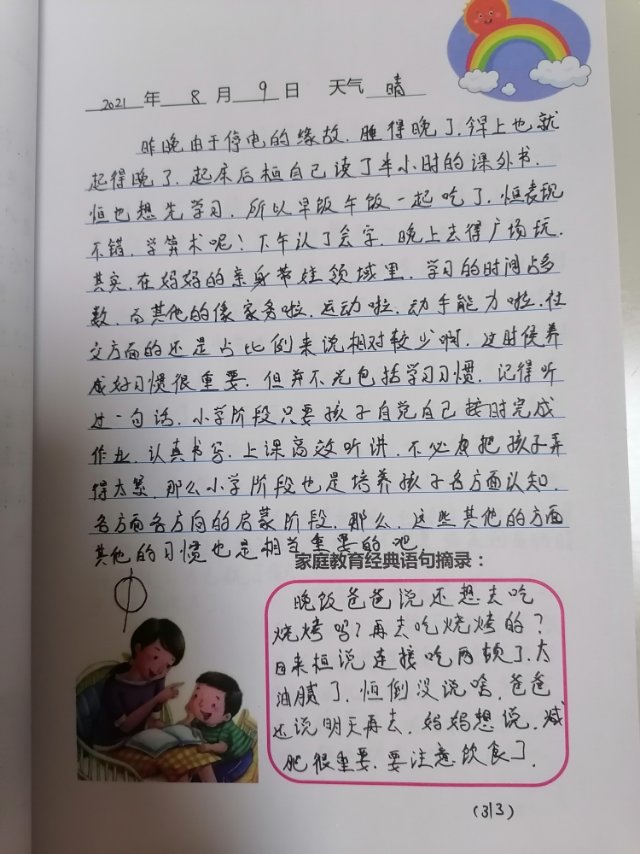 2021 年 8 月 9 日 天气 晴
昨晚由于停电的缘故，睡得晚了，早上也就
起得晚了，起床后桓自己读了半小时的课外书，
恒也想先学习，所以早饭午饭一起吃了，恒表现
不错，学算术呢！下午认了会字，晚上去得广场玩，
其实，在妈妈的亲身带娃领域里，学习的时间占多
数，而其他的像家务啦，运动啦，动手能力啦，社
交方面的还是占比例来说相对较少啊，这时侯养
成好习惯很重要，但并不光包括学习习惯，记得听
过一句话，小学阶段只要孩子自觉自己按时完成
作业，认真书写，上课高效听讲，不必把孩子弄
得太累，那么小学阶段也是培养孩子各方面认知，
各方面各方向的启蒙阶段，那么，这些其他的方面
其他的习惯也是相当重要的吧
家庭教育经典语句摘录：
晚饭爸爸说还想去吃
烧烤吗？再去吃烧烤的？
桓说连接吃两顿了，太
油腻了，恒倒没说啥，爸爸
还说明天再去，妈妈想说，减
肥很重要，要注意饮食了．
(313)